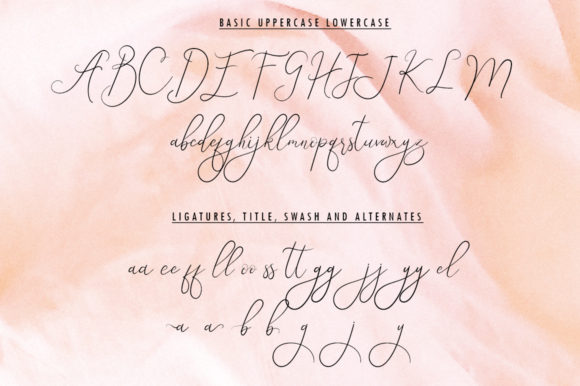 BASIC UPPERCASE LOWERCASE
ABCDEFGHIJKLM
abcdefghijklmnopqrstuvwxyz
LIGATURES, TITLE, SWASH AND ALTERNATES
aa ee ff ll oo ss tt gg jj yy el
a a b b g j y